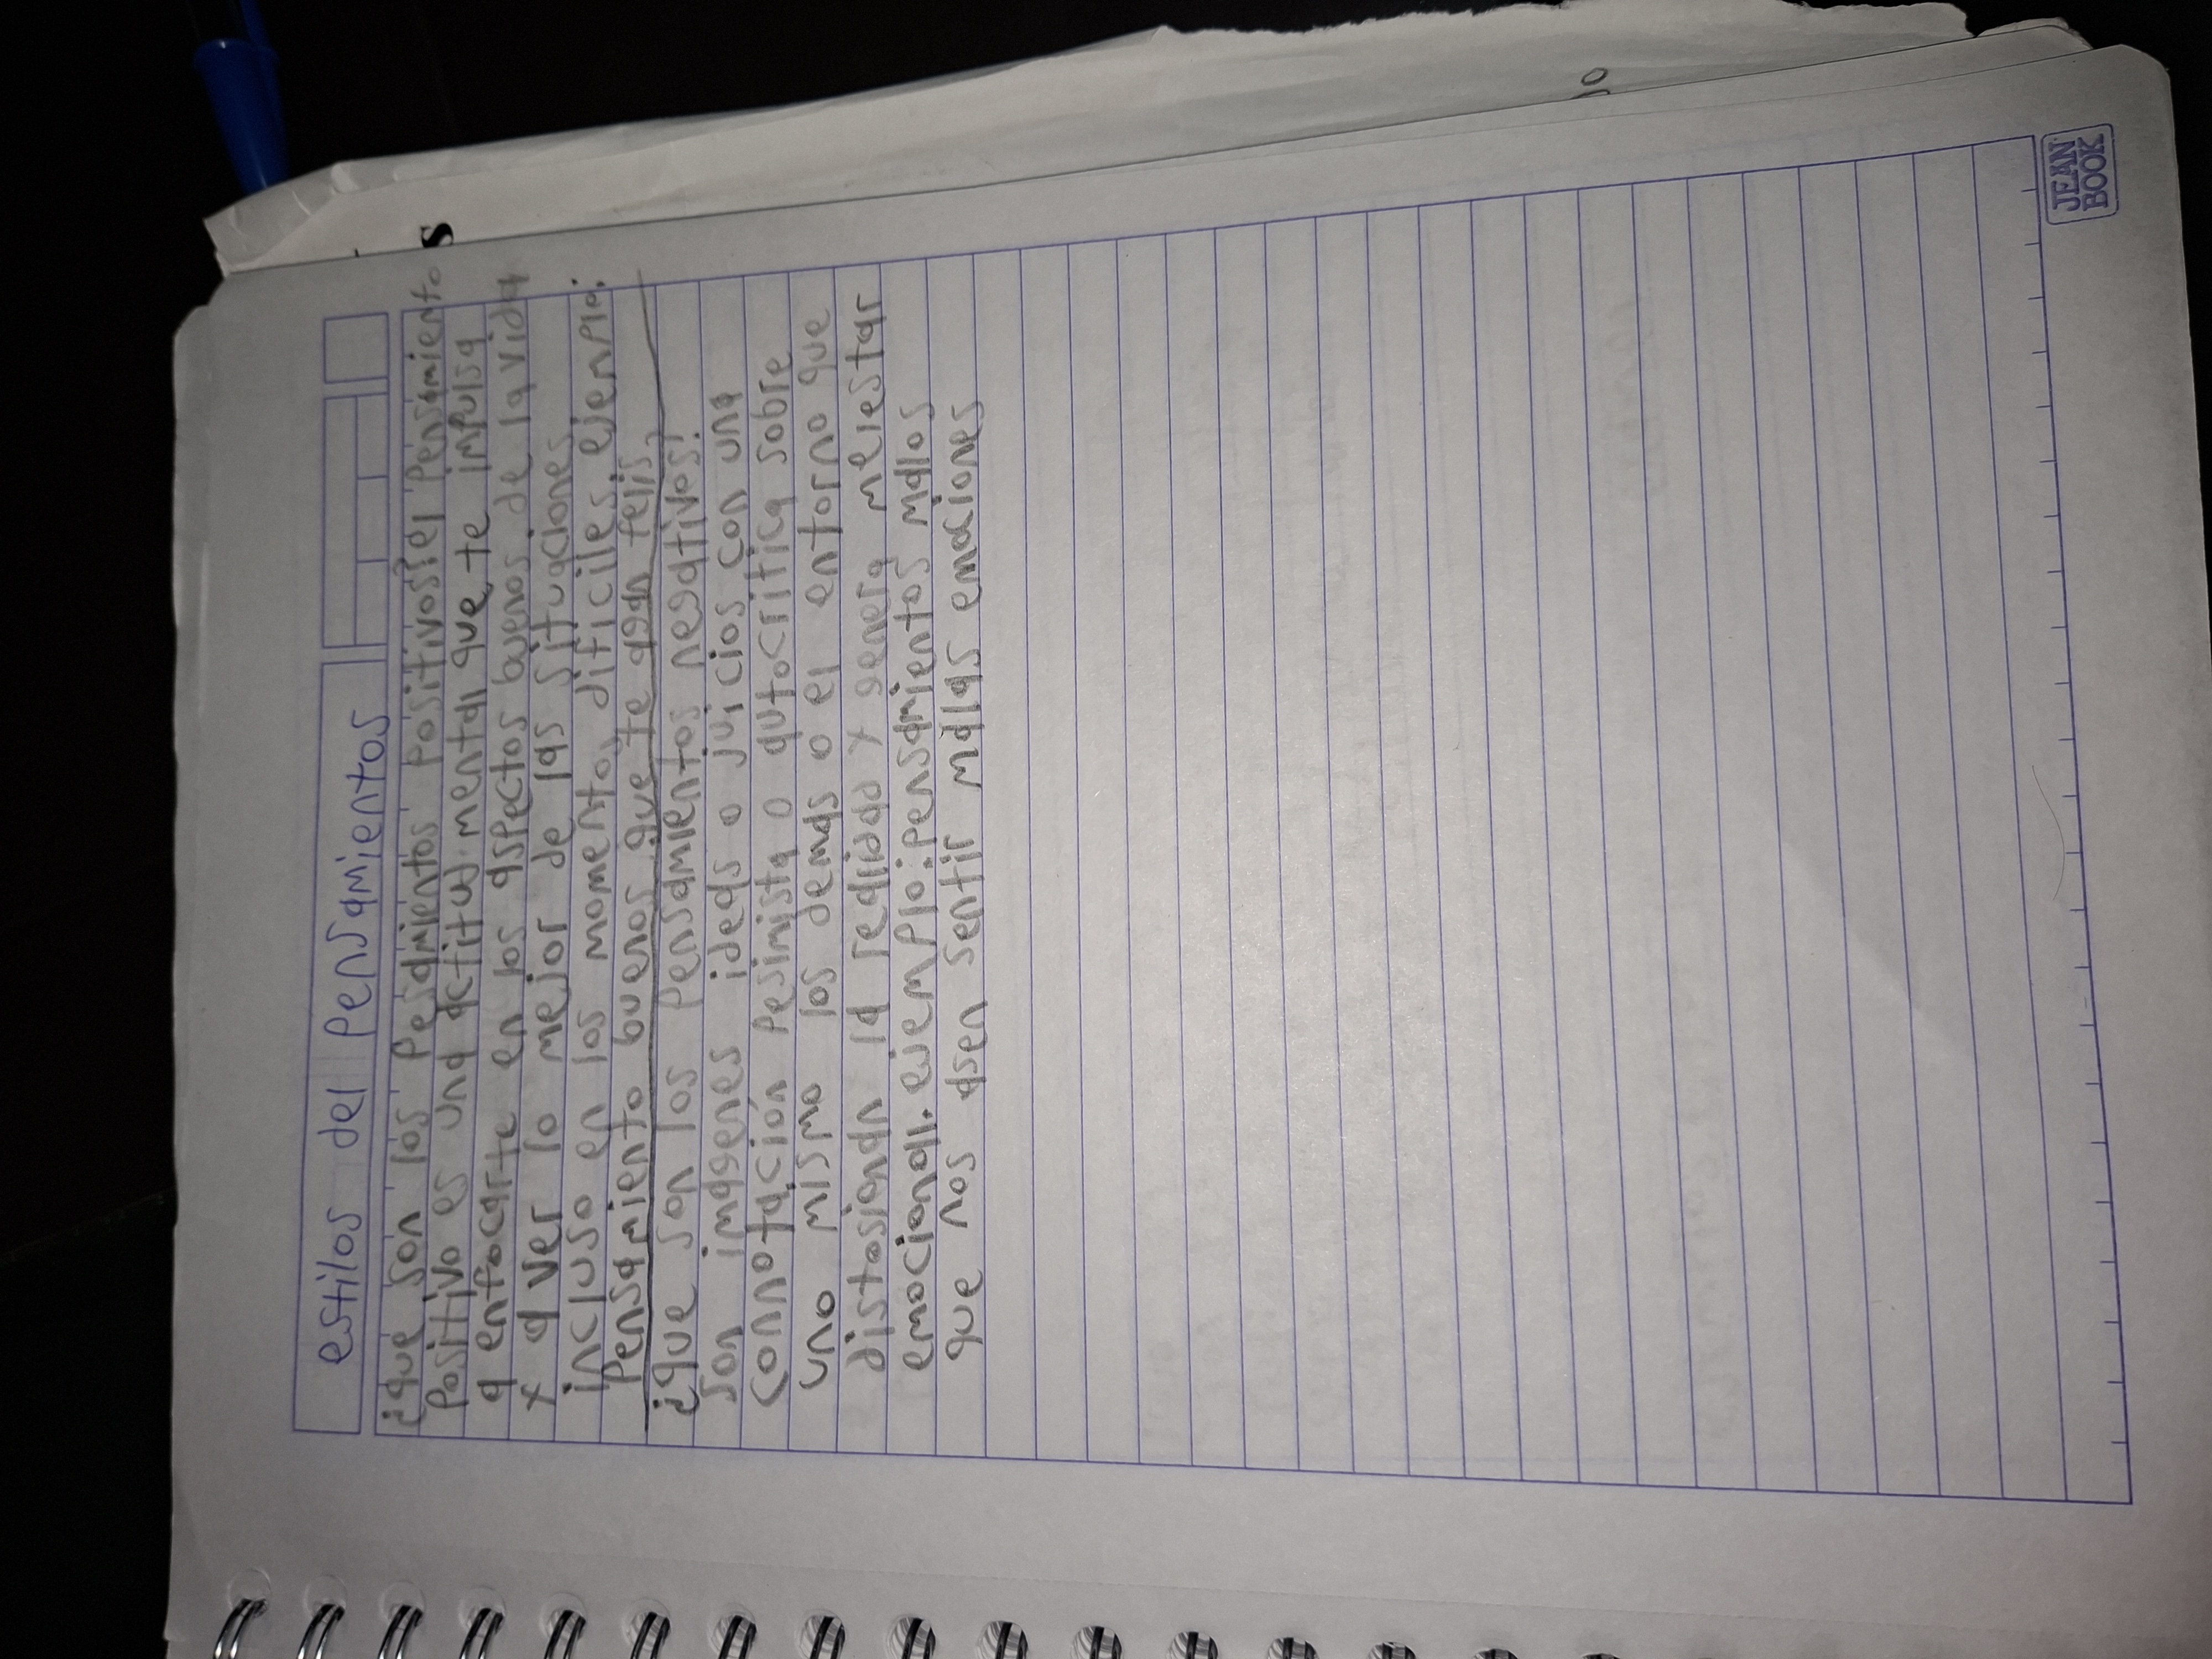 estilos del Pensamientos
¿que son los Pesamientos Positivos?el Pensamiento
Positivo es una actitud mental que te impulsa
a enfocarte en los aspectos buenos de la vida
y a ver lo mejor de las situaciones
incluso en los momento, dificiles. ejemplo:
Pensamiento buenos que te agan felis,
¿que son los Pensamientos negativos?
son imagenes ideas o juicios con una
connotación Pesimista o autocritica sobre
uno mismo los demas o el entorno que
distosionan la realidad y genera meiestar
emocional. ejemplo: pensamientos malos
que nos asen sentir malas emociones
JEAN
BOOK